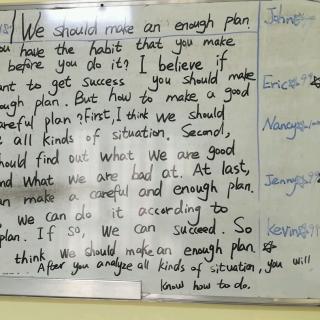 We should make an enough plan.
you have the habit that you make
before you do it? I believe if
want to get success you should make
enough plan. But how to make a good
careful plan? First, I think we should
all kinds of situation. Second,
should find out what we are good
and what we are bad at. At last,
can make a careful and enough plan.
we can do it according to
plan. If so, we can succeed. So
think we should make an enough plan.
After you analyze all kinds of situation, you will
know how to do.
John
Eric
Nancy
Jenny
Kevin